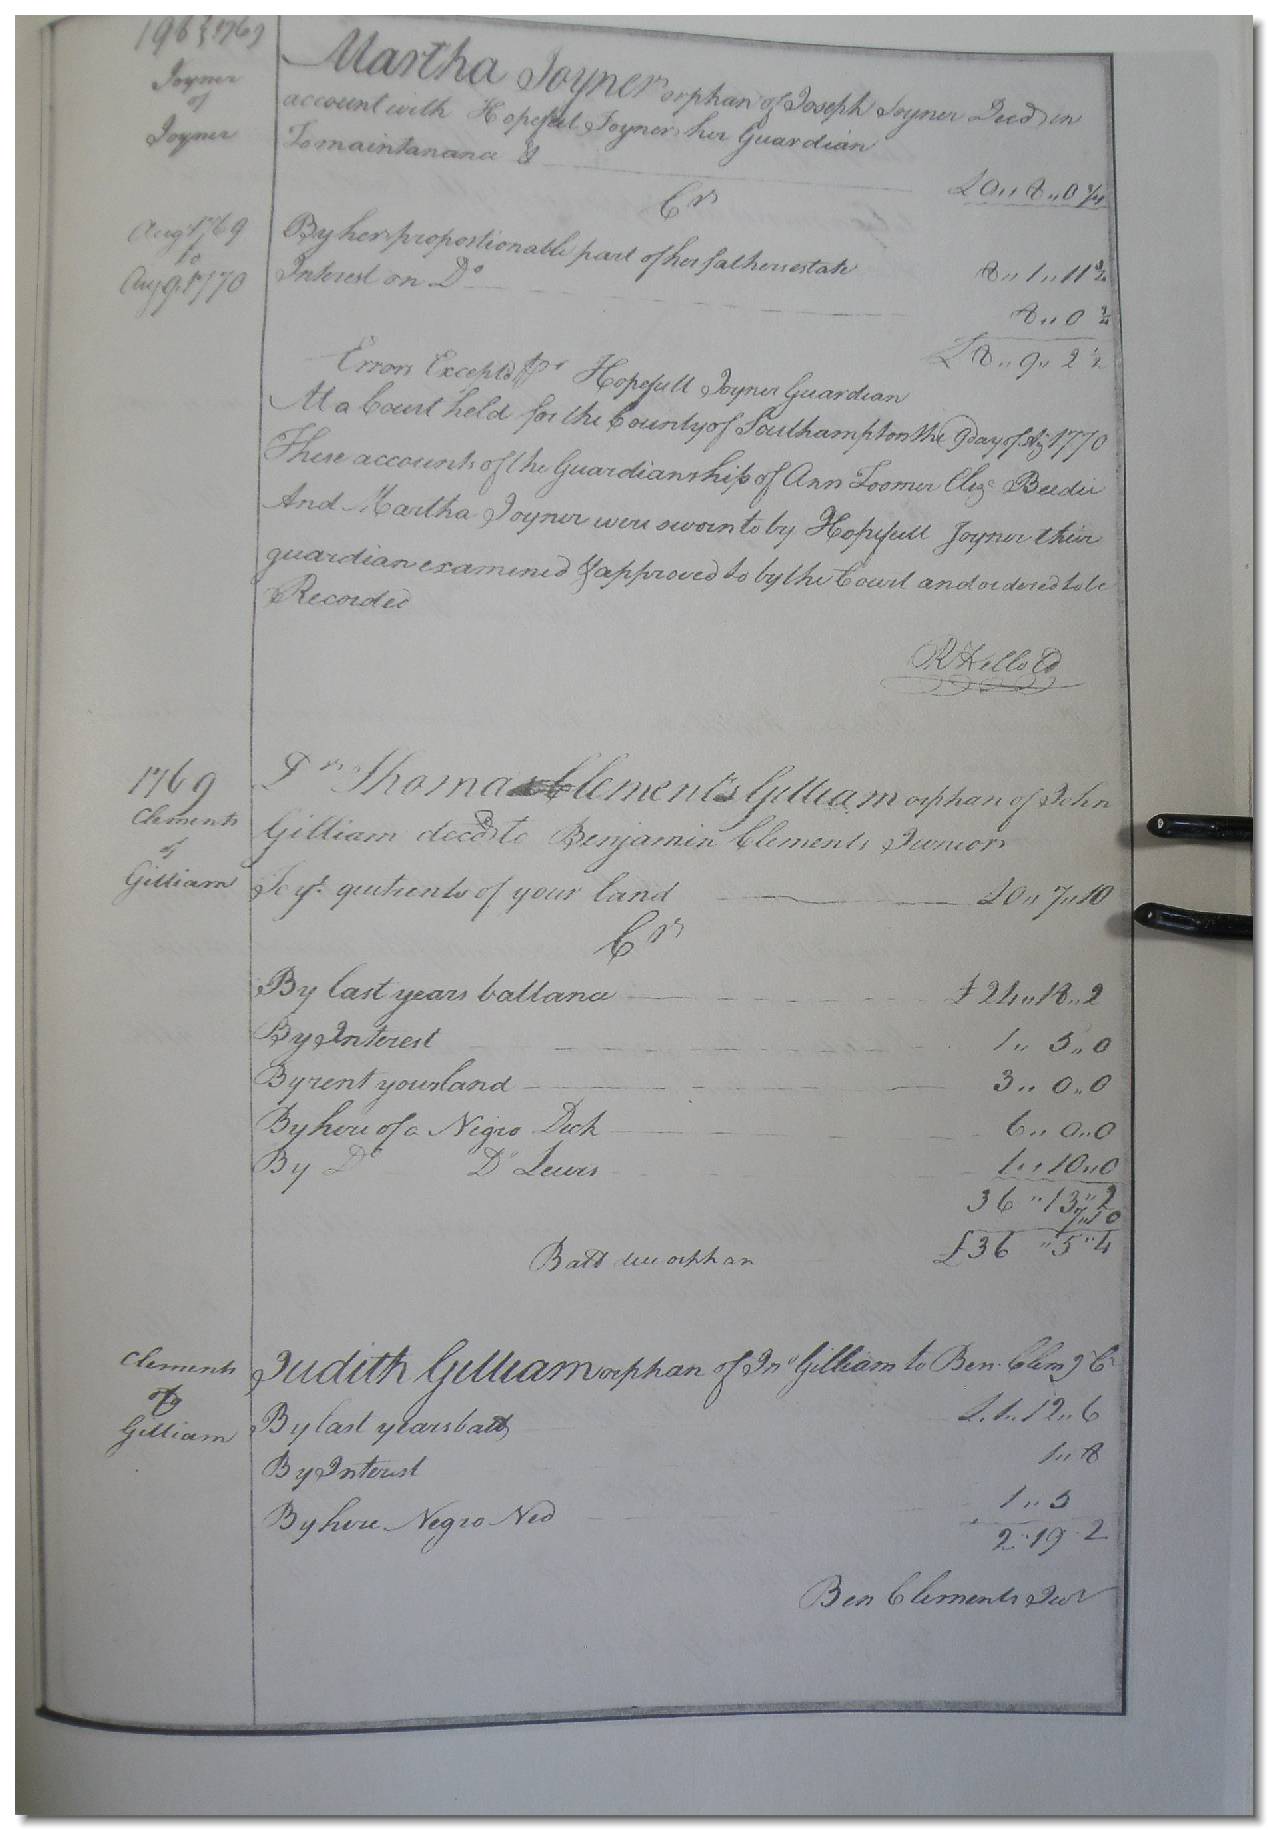 1769
Joyner
of
Joyner
Martha Joyner orphan of Joseph Joyner Decd in
account with Hopefull Joyner her Guardian
To maintanance &
£0,,8,,0 3/4
Cr
Augt 1769
to
Augt 1770
By her proportionable part of her fathers estate 8,,1,,11 3/4
Interest on Do 8,,0 3/4
£8,,9,,2 1/2
Errors Excepted pr Hopefull Joyner Guardian
At a Court held for the County of Southampton the 9 day of Ag 1770
These accounts of the Guardianship of Ann Toomer Eliz Beedie
And Martha Joyner were sworn to by Hopefull Joyner their
guardian examined & approved to by the Court and ordered to be
Recorded
R Kello Co
1769
Clements
of
Gilliam
Dr Thomas Clements Gilliam orphan of John
Gilliam decd to Benjamin Clements Junior
To yr quitrents of your land £0,,7,,10
Cr
By last years ballance £24,,18,,2
By Interest 1,,5,,0
By rent your land 3,,0,,0
By hire of a Negro Dick 6,,0,,0
By Do Do Lewis 1,,10,,0
36,,13,,2
7,,10
Ball due orphan £36,,5,,4
Clements
of
Gilliam
Judith Gilliam orphan of Jno Gilliam to Ben. Clem Cr
By last years ball £1,,12,,6
By Interest 1,,8
By hire Negro Ned 1,,5
2,,19,,2
Ben Clements Junr